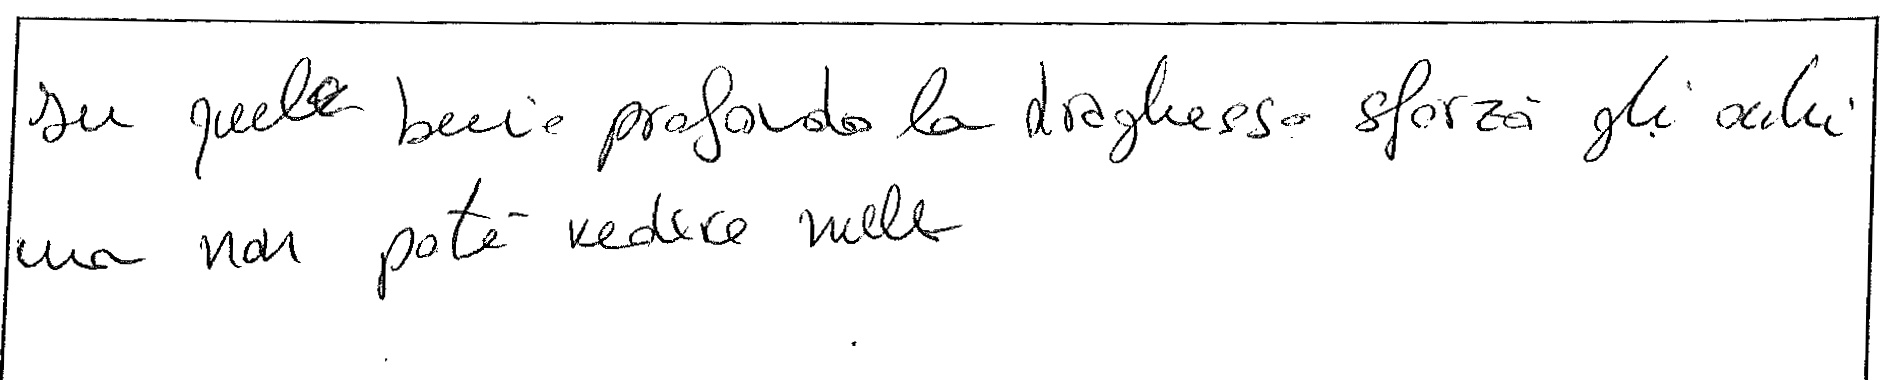 su quel buio profondo la draghessa sforzò gli occhi
ma non potè vedere nulla